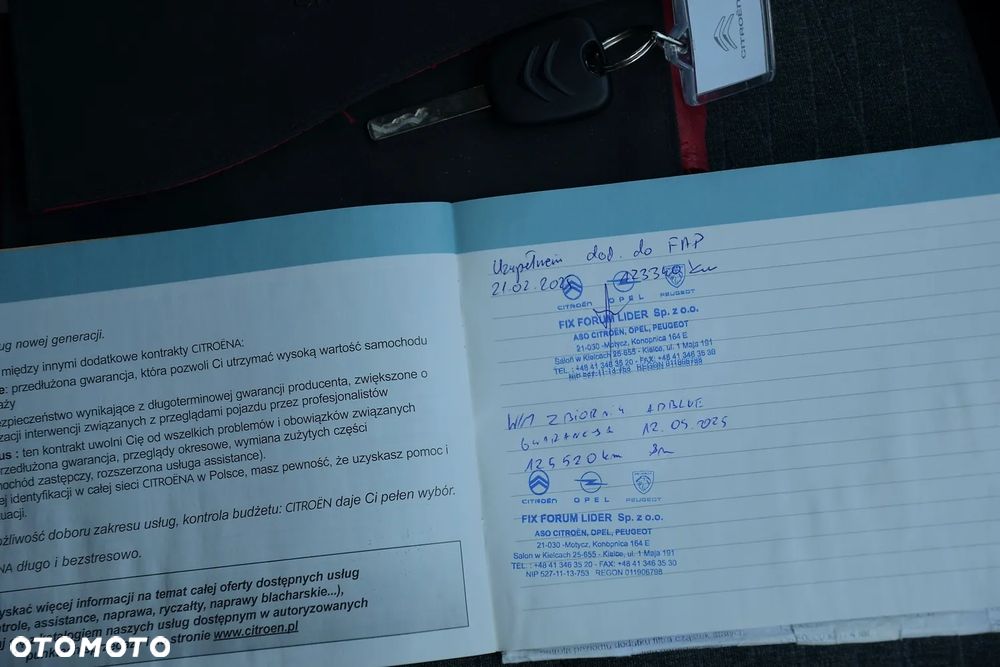 CITROËN
ug nowej generacji.
między innymi dodatkowe kontrakty CITROËNA:
e: przedłużona gwarancja, która pozwoli Ci utrzymać wysoką wartość samochodu
aży
ezpieczeństwo wynikające z długoterminowej gwarancji producenta, zwiększone o
zacji interwencji związanych z przeglądami pojazdu przez profesjonalistów
us : ten kontrakt uwolni Cię od wszelkich problemów i obowiązków związanych
rzedłużona gwarancja, przeglądy okresowe, wymiana zużytych części
mochód zastępczy, rozszerzona usługa assistance).
ej identyfikacji w całej sieci CITROËNA w Polsce, masz pewność, że uzyskasz pomoc i
uacji.
ożliwość doboru zakresu usług, kontrola budżetu: CITROËN daje Ci pełen wybór.
NA długo i bezstresowo.
yskać więcej informacji na temat całej oferty dostępnych usług
trole, assistance, naprawa, ryczałty, naprawy blacharskie...),
talogiem naszych usług dostępnym w autoryzowanych
stronie www.citroen.pl
dod. do FAP
21.02.2025 123340 km
CITROËN OPEL PEUGEOT
FIX FORUM LIDER Sp. z o.o.
ASO CITROËN, OPEL, PEUGEOT
21-030 -Motycz, Konopnica 164 E
Salon w Kielcach 25-655 - Kielce, ul. 1 Maja 191
TEL. : +48 41 346 35 20 - FAX: +48 41 346 35 30
NIP 527-11-13-753 REGON 011906798
WM ZBIORNIK ADBLUE
GWARANCJA 12.05.2025
125520 km
CITROËN OPEL PEUGEOT
FIX FORUM LIDER Sp. z o.o.
ASO CITROËN, OPEL, PEUGEOT
21-030 -Motycz, Konopnica 164 E
Salon w Kielcach 25-655 - Kielce, ul. 1 Maja 191
TEL. : +48 41 346 35 20 - FAX: +48 41 346 35 30
NIP 527-11-13-753 REGON 011906798
OTOMOTO